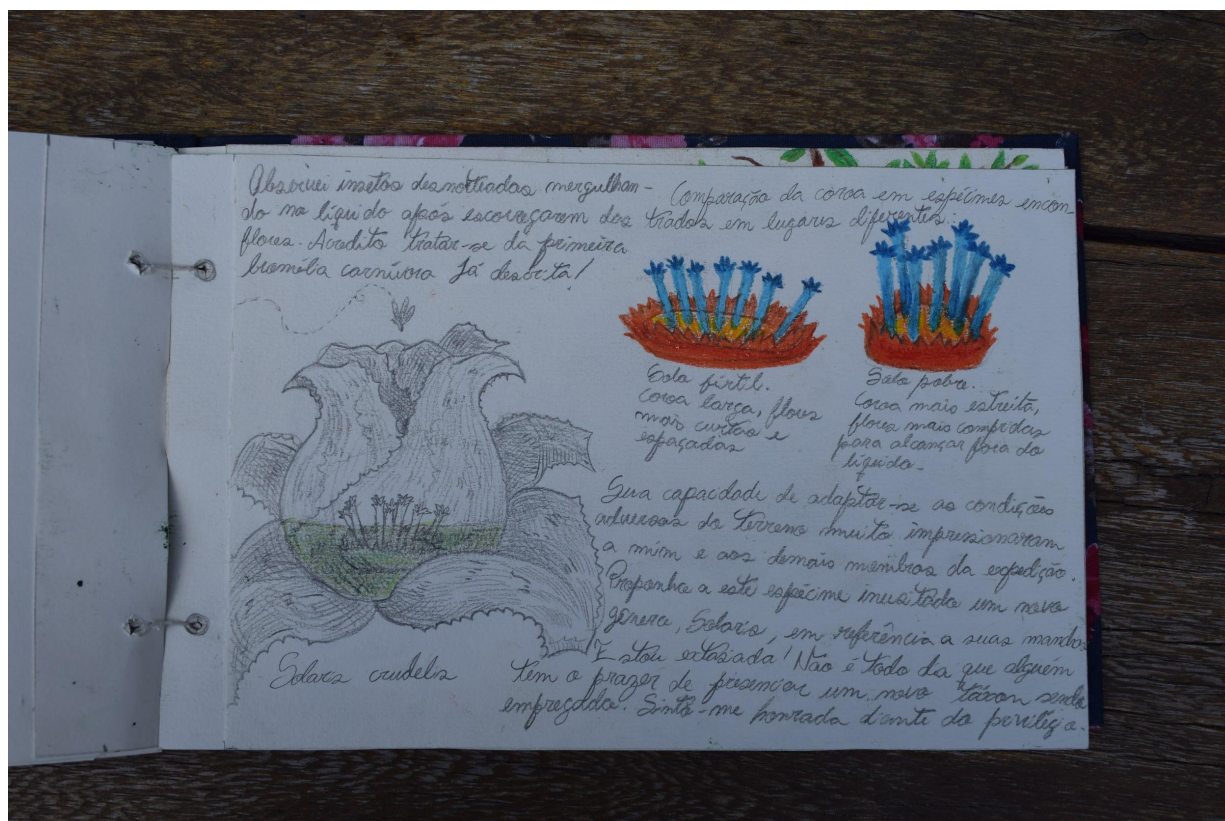 Observei insetos desnorteados mergulhan-
do no líquido após escorregarem das
flores. Acredito tratar-se da primeira
bromélia carnívora já descrita!
Comparação da coroa em espécimes encon-
trados em lugares diferentes:
Solo fértil.
Coroa larga, flores
mais curtas e
espaçadas
Solo pobre.
Coroa mais estreita,
flores mais compridas
para alcançar fora do
líquido.
Sua capacidade de adaptar-se as condições
adversas do terreno muito impressionaram
a mim e aos demais membros da expedição.
Proponho a este espécime inusitado um novo
gênero, Solaris, em referência a suas manchas
Estou extasiada! Não é todo dia que alguém
tem o prazer de presenciar um novo táxon sendo
empregado. Sinto-me honrada diante do privilégio.
Solaris crudelis